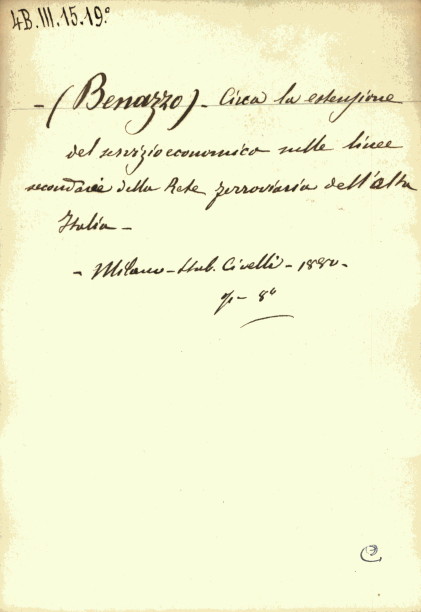 4B.III.15.19.º
- (Benazzo) - Circa la estensione
del servizio economico sulle linee
secondarie della Rete ferroviaria dell'alta
Italia -
- Milano - Stab. Civelli - 1880 -
8º